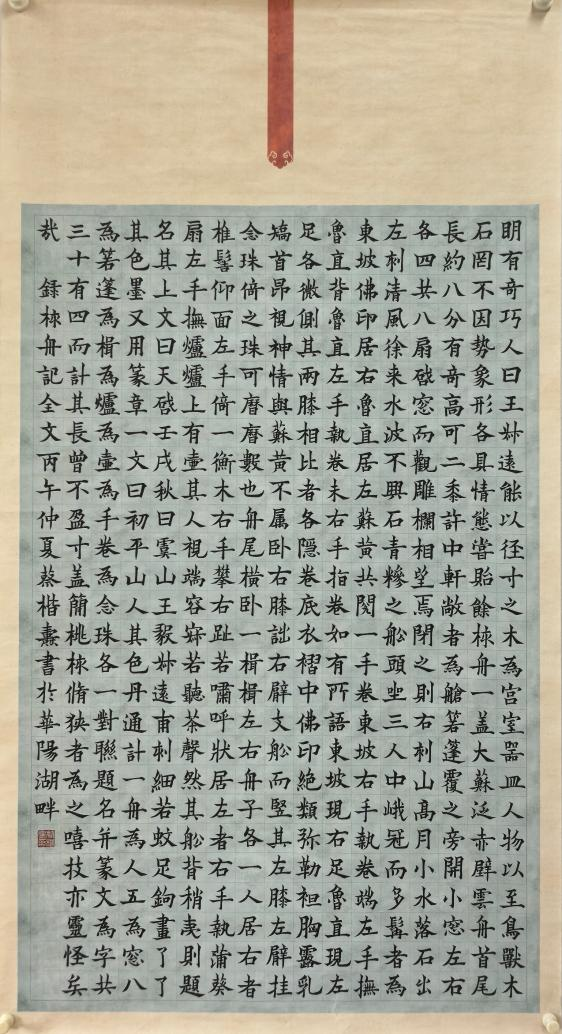 明有奇巧人曰王叔遠能以徑寸之木為宮室器皿人物以至鳥獸木
石罔不因勢象形各具情態嘗貽餘核舟一盖大蘇泛赤壁雲舟首尾
長約八分有奇高可二黍許中軒敞者為艙箬篷覆之旁開小窓左右
各四共八扇啟窓而觀雕欄相望焉閉之則右刻山高月小水落石出
左刻清風徐来水波不興石青糝之船頭坐三人中峨冠而多髯者為
東坡佛印居右魯直居左蘇黃共閱一手卷東坡右手執卷端左手撫
魯直背魯直左手執卷末右手指卷如有所語東坡現右足魯直現左
足各微側其兩膝相比者各隱卷底衣褶中佛印絕類彌勒袒胸露乳
矯首昂視神情與蘇黃不属卧右膝詘右臂支船而竪其左膝左臂挂
念珠倚之珠可曆曆數也舟尾橫卧一楫楫左右舟子各一人居右者
椎髻仰面左手倚一衡木右手攀右趾若嘯呼狀居左者右手執蒲葵
扇左手撫爐爐上有壺其人視端容寂若聽茶聲然其船背稍夷則題
名其上文曰天啟壬戌秋日虞山王毅叔遠甫刻細若蚊足鉤畫了了
其色墨又用篆章一文曰初平山人其色丹通計一舟為人五為窓八
為箬篷為楫為爐為壺為手卷為念珠各一對聯題名并篆文為字共
三十有四而計其長曾不盈寸盖簡桃核脩狹者為之嘻技亦靈怪矣
哉 錄核舟記全文丙午仲夏蔡楷燾書於華陽湖畔